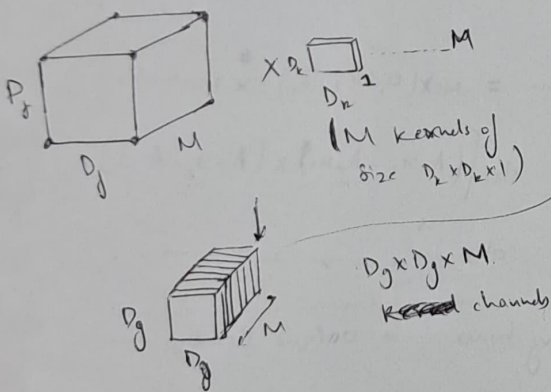 D_f
D_f
M
X D_k
D_k
1
M
(M kernels of
size D_k x D_k x 1)
D_g
D_g
M
D_g x D_g x M
channels